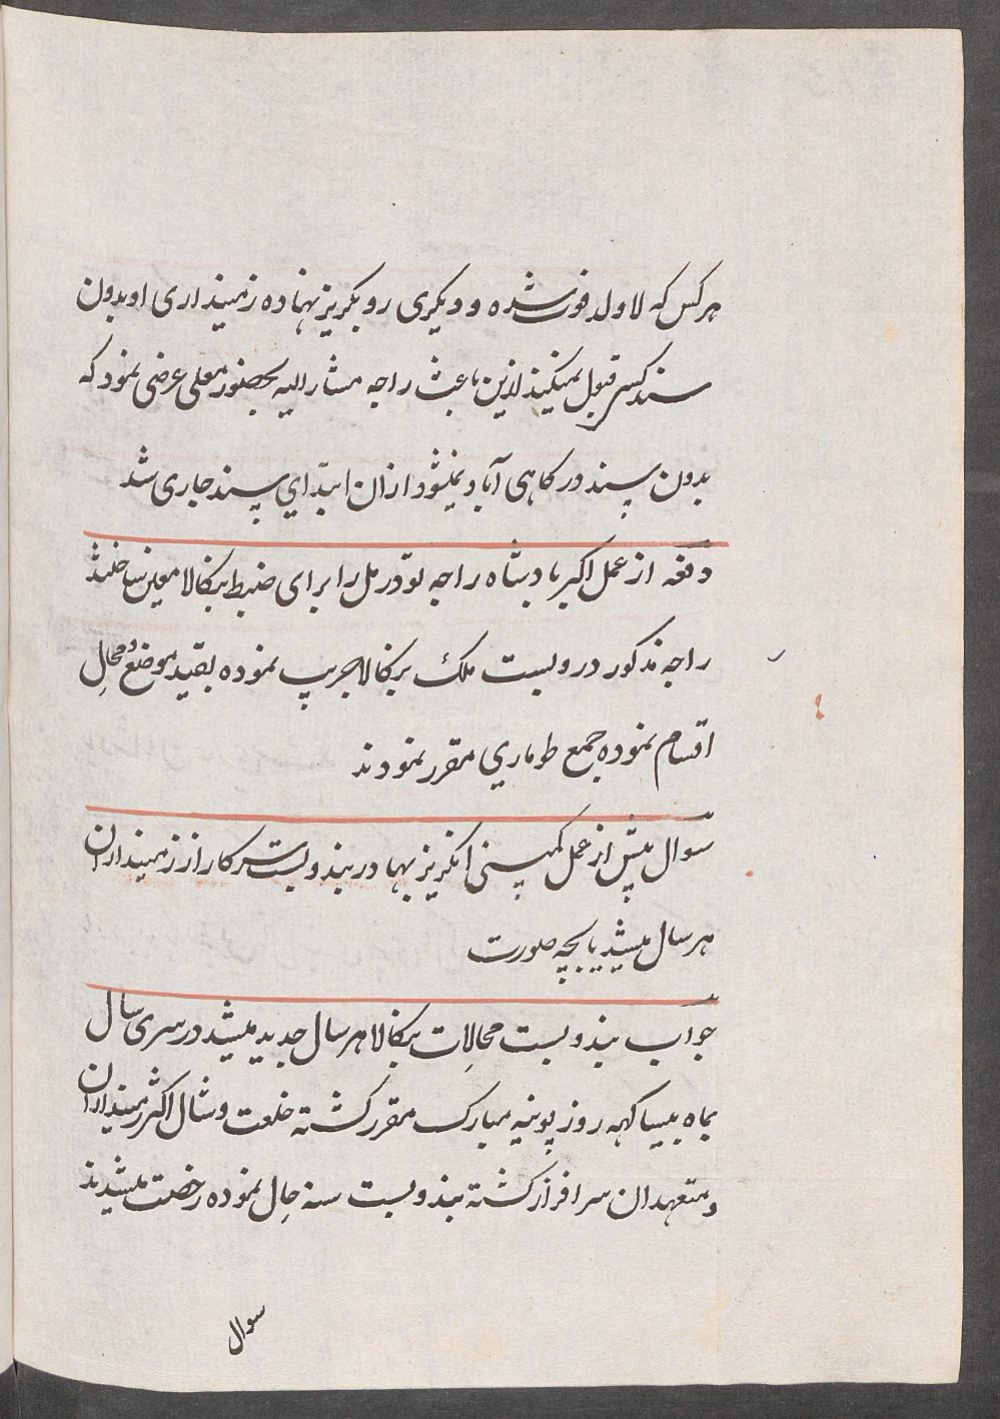 هر کس که لاولد فوت شده و دیگری رو بگریز نهاده زمینداری او بدون
سند کسی قبول نمیکند ازین باعث راجه مشار الیه بحضور معلی عرضی نمود که
بدون سند در کاهی آباد نمیشود ازان ابتدای سند جاری شد
دفعه از عمل اکبر بادشاه راجه تودرمل را برای ضبط بنکالا معین ساختند
راجه مذکور در و بست ملک بنکالا جریب نموده بقید موضع و محال
اقسام نموده جمع طوماری مقرر نمودند
سوال پیش از عمل کمپنی انکریز بهادر بندوبست سرکار از زمینداران
هر سال میشد یا بچه صورت
جواب بندوبست محالات بنکالا هر سال جدید میشد در سری سال
بماه بیساکهه روز پونیه مبارک مقرر کشته خلعت و شال اکثر زمینداران
و متعهدان سرافراز کشته بندوبست سنه حال نموده رخصت میشدند
سوال